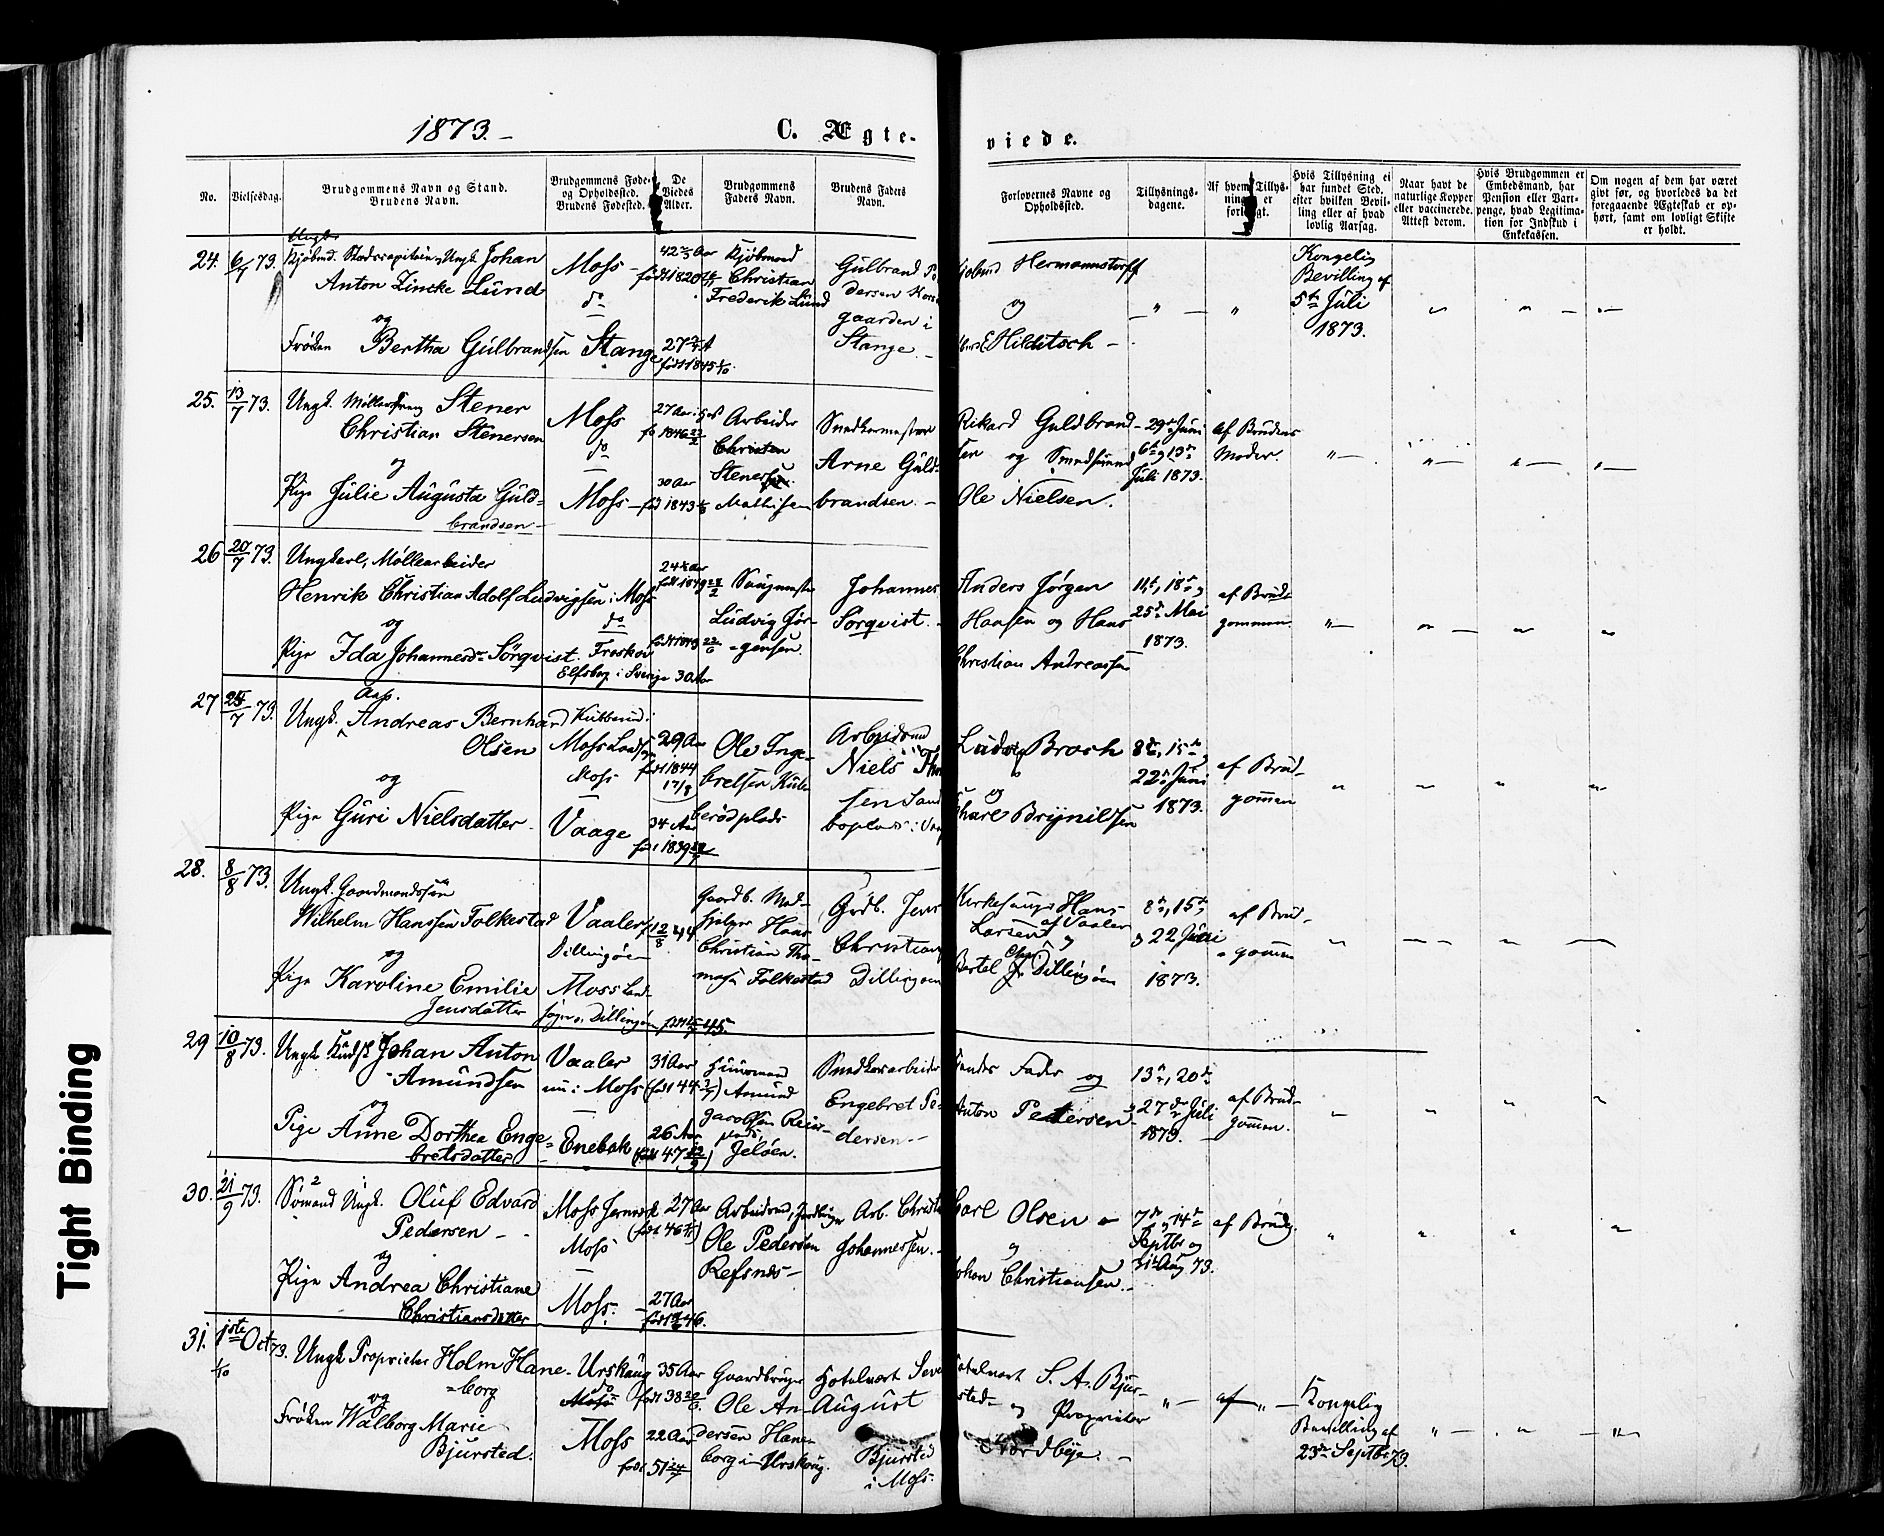 1873. —
C. Ægte-
viede.
No.
Vielsesdag.
Brudgommens Navn og Stand.
Brudens Navn.
Brudgommens Føde-
og Opholdssted.
Brudens Fødested.
De
Viedes
Alder.
Brudgommens
Faders Navn.
Brudens Faders
Navn.
Forlovernes Navne og
Opholdssted.
Tillysnings-
dagene.
Af hvem Tillys-
ningen er
forlangt.
Hvis Tillysning ei
har fundet Sted,
efter hvilken Bevil-
ling eller af hvad
lovlig Aarsag.
Naar havt de
naturlige Kopper
eller vaccinerede.
Attest derom.
Hvis Brudgommen er
Embedsmand, har
Pension eller Vart-
penge, hvad Legitima-
tion for Indskud i
Enkekassen.
Om nogen af dem har været
givt før, og hvorledes da det
foregaaende Ægteskab er op-
hørt, samt om lovligt Skifte
er holdt.
24. 6/7 73.
Kjøbmd. Stadscapitein, Ungk. Johan
Anton Zincke Lund
og
Frøken Bertha Gulbrandsen
Moss
do
Stange
42 Aar
født 1820
27
født 1845
Kjøbmand
Christian
Frederik Lund
Gulbrand Pe-
dersen
gaarden i
Stange. —
Hermannstorff
og
Hilditsch —
Kongelig
Bevilling af
5te Juli
1873.
25. 13/7 73.
Ungk. Stener
Christian Stenersen
og
Pige Julie Augusta Guld-
brandsen —
Moss
do
Moss —
27 Aar
1846
30 Aar
født 1843
Arbeider
Christen
Stenersen
Mathisen
Snedkermester
Arne Guld-
brandsen. —
Rikard Guldbrand-
sen og Smedsvend
Ole Nielsen.
29de Juni
6te og 13de
Juli 1873.
af Brudens
Moder.
26 20/7 73.
Ungkarl, Møllearbeider
Henrik Christian Adolf Ludvigsen i Moss
og
Pige Ida Johannesdr Sörqvist.
do
Elfsborg i Sverige 30 Aar
født 1849
Saugmester
Ludvig Jør-
gensen.
Johannes
Sörqvist. —
Anders Jørgen
Hansen og Hans
Christian Andreassen
11te, 18de og
25de Mai
1873.
af Brud-
gommen.
27 25/7 73.
Ungk. Arb. Andreas Bernhard
Olsen
og
Pige Guri Nielsdatter.
Moss Landsogn
Moss
Vaage
29 Aar
født 1844
17/8
34 Aar
født 1839
Ole Inge-
bretsen
Arbeidsmd
Niels
sen Sand
boplads i Vaage
Ludvig Broch
og
Brynildsen
8de, 15de og
22de Juni
1873.
af Brud-
gommen
28. 8/8 73.
Ungk. Gaardmandssøn
Wilhelm Hanssen Folkestad
og
Pige Karoline Emilie
Jensdatter
Vaaler
Dillingøen
Moss Land-
sogn, Dillingøen
12/8 44
født 45.
Gaardb. Med-
hjelper Hans
Christian Tho-
masen Folkestad
Grdb. Jens
Christian
Dillingøen
Kirkesanger Hans
Larsen af Vaaler
og
Bertel Dillingøen
8de, 15de
og 22 Juni
1873.
af Brud-
gommen
29 10/8 73.
Ungk. Kudsk Johan Anton
Amundsen
og
Pige Anne Dorthea Enge-
bretsdatter
Vaaler
nu i Moss
Enebak
31 Aar
26 Aar
Husmand
Amund
Jacobsen Reier-
plads,
Jeløen.
Snedkerarbeider
Engebret Pe-
dersen. —
Fader og
Anton Pedersen
13de, 20de
og 27de Juli
1873. —
af Brud-
gommen.
30. 21/9 73.
Sømand Ungk. Oluf Edvard
Pedersen —
og
Pige Andrea Christiane
Christiansdatter
Moss
Moss
Moss.
27 Aar
27 Aar
Arbeidsmd,
Ole Pedersen
Refsnes —
Arb. Christian
Johannessen. —
Carl Olsen
og
Johan Christiansen. —
7de og 14de
Septbr og
31te Aug 73.
af Brudg.
31. 1ste Oct 73.
1/10
Ungk. Proprietær Holm Hane-
borg
og
Frøken Walborg Marie
Bjursted.
Urskoug
do
Moss
35 Aar
født 38
22 Aar
født 51
Gaardbruger
Ole An-
dersen Hane-
borg i Urskoug.
Hotelvært
August
Bjursted
i Moss.
Hotelvært S. A. Bjur-
sted og Proprietær
Kongelig
Bevilling af
23de Septbr 73.
Tight Binding